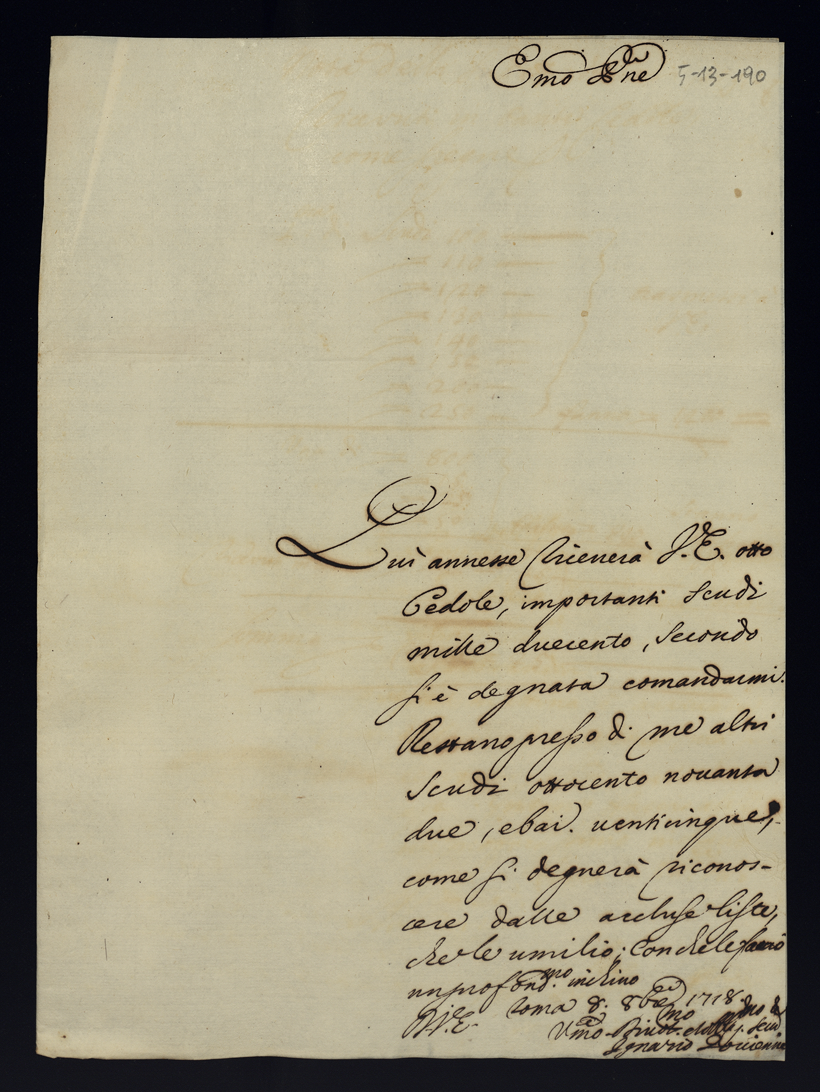 Emo Pne 5-13-190
Qui annesse riceverà V.E. otto
Cedole, importanti scudi
mille duecento, secondo
si è degnata comandarmi.
Restano presso di me altri
scudi ottocento novanta
due, e bai. venticinque,
come si degnerà riconos-
cere dalle accluse liste,
che le umilio; Con che le faccio
un profond.mo inchino
Di V.E. Roma 8. 8bre 1718.
Vmo
Ignazio